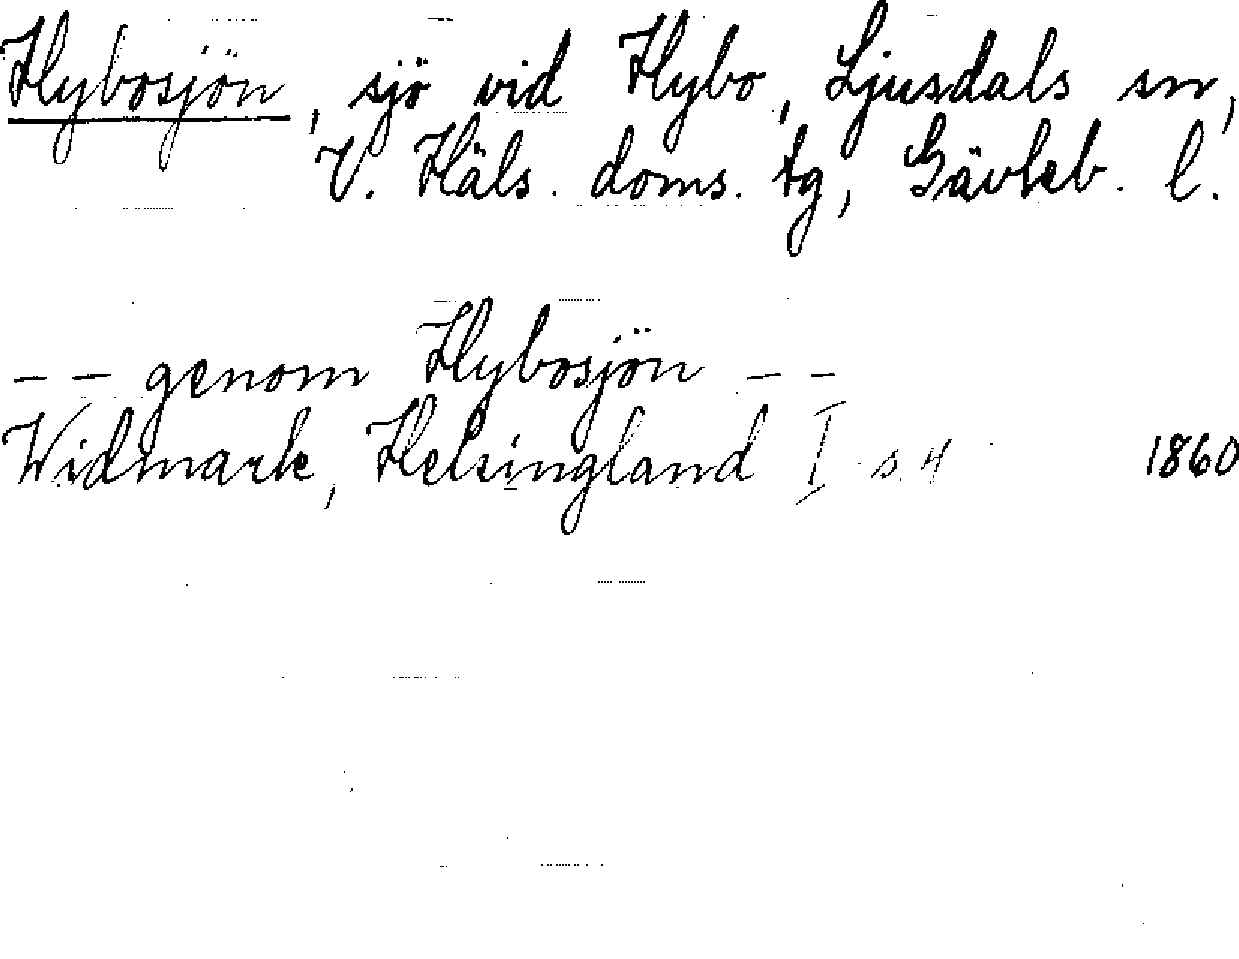 Hybosjön, sjö vid Hybo, Ljusdals sn,
V. Häls. doms. tg, Gävleb. l.
— — genom Hybosjön — —
Widmark, Helsingland I s. 4 1860